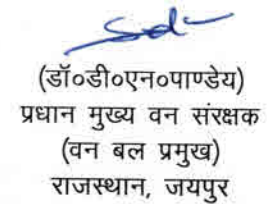 Sd-
(डॉ०डी०एन०पाण्डेय)
प्रधान मुख्य वन संरक्षक
(वन बल प्रमुख)
राजस्थान, जयपुर